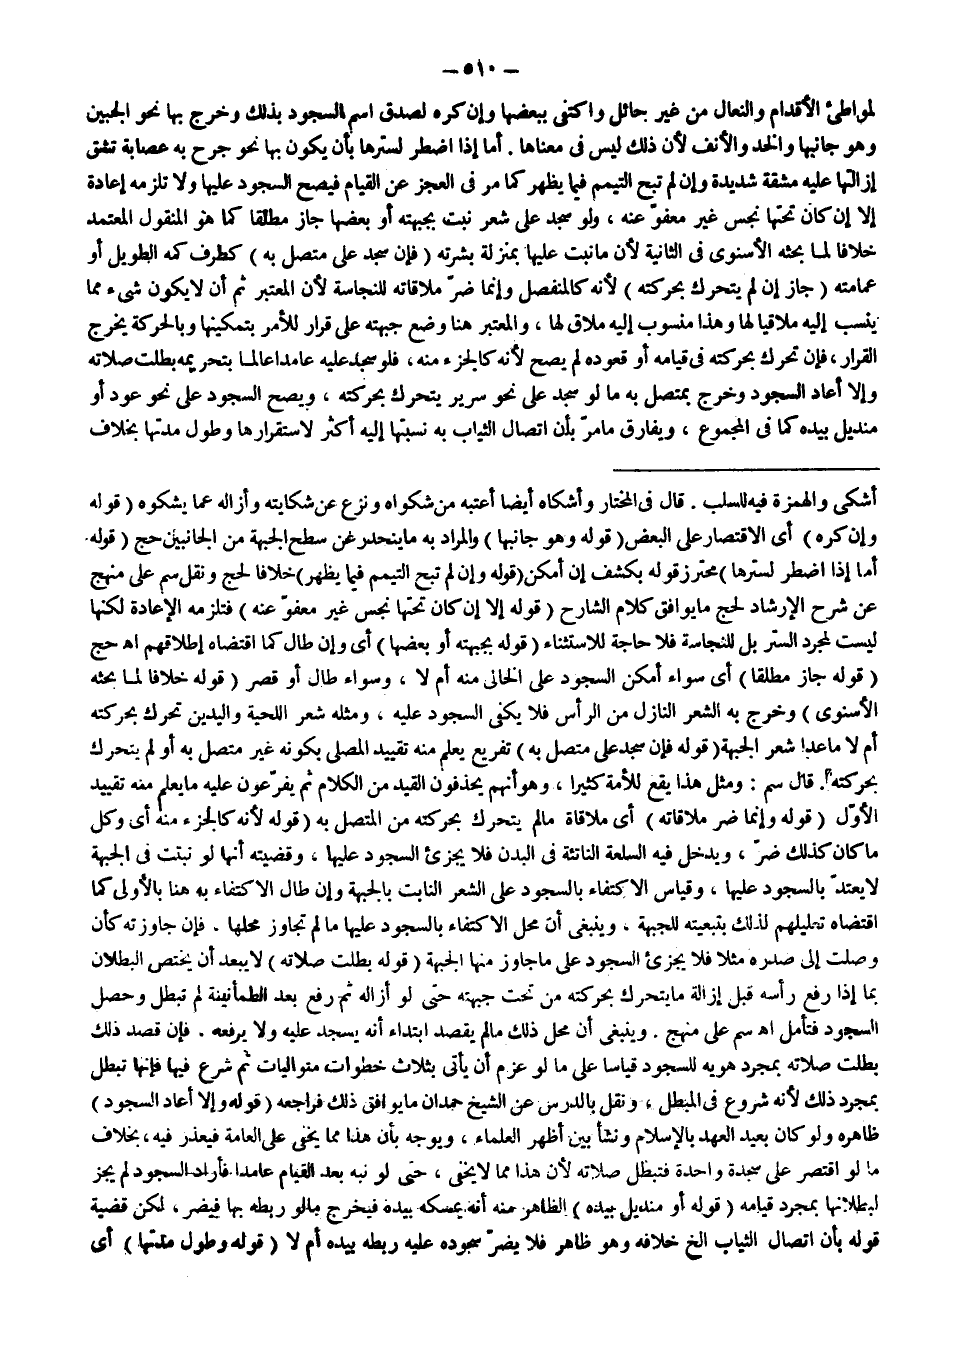 — ٥١٠ —
لمواطئ الأقدام والنعال من غير حائل واكتفى ببعضها وإن كره لصدق اسم السجود بذلك وخرج بها نحو الجبين
وهو جانبها والخد والأنف لأن ذلك ليس فى معناها . أما إذا اضطر لسترها بأن يكون بها نحو جرح به عصابة تشق
إزالتها عليه مشقة شديدة وإن لم تبح التيمم فيما يظهر كما مر فى العجز عن القيام فيصح السجود عليها ولا تلزمه إعادة
إلا إن كان تحتها نجس غير معفوّ عنه ، ولو سجد على شعر نبت بجبهته أو بعضها جاز مطلقا كما هو المنقول المعتمد
خلافا لما بحثه الأسنوى فى الثانية لأن مانبت عليها بمنزلة بشرته ( فإن سجد على متصل به ) كطرف كمه الطويل أو
عمامته ( جاز إن لم يتحرك بحركته ) لأنه كالمنفصل وإنما ضرّ ملاقاته للنجاسة لأن المعتبر ثم أن لايكون شىء مما
ينسب إليه ملاقيا لها وهذا منسوب إليه ملاق لها ، والمعتبر هنا وضع جبهته على قرار للأمر بتمكينها وبالحركة يخرج
القرار ، فإن تحرك بحركته فى قيامه أو قعوده لم يصح لأنه كالجزء منه ، فلو سجد عليه عامدا عالما بتحريمه بطلت صلاته
وإلا أعاد السجود وخرج بمتصل به ما لو سجد على نحو سرير يتحرك بحركته ، ويصح السجود على نحو عود أو
منديل بيده كما فى المجموع ، ويفارق مامرّ بأن اتصال الثياب به نسبتها إليه أكثر لاستقرارها وطول مدتها بخلاف
أشكى والهمزة فيه للسلب . قال فى المختار وأشكاه أيضا أعتبه من شكواه ونزع عن شكايته وأزاله عما يشكوه ( قوله
وإن كره ) أى الاقتصار على البعض ( قوله وهو جانبها ) والمراد به ماينحدر عن سطح الجبهة من الجانبين حج ( قوله
أما إذا اضطر لسترها ) محترز قوله بكشف إن أمكن ( قوله وإن لم تبح التيمم فيما يظهر ) خلافا لحج ونقل سم على منهج
عن شرح الإرشاد لحج مايوافق كلام الشارح ( قوله إلا إن كان تحتها نجس غير معفوّ عنه ) فتلزمه الإعادة لكنها
ليست لمجرد الستر بل للنجاسة فلا حاجة للاستثناء ( قوله بجبهته أو بعضها ) أى وإن طال كما اقتضاه إطلاقهم اهـ حج
( قوله جاز مطلقا ) أى سواء أمكن السجود على الخالى منه أم لا ، وسواء طال أو قصر ( قوله خلافا لما بحثه
الأسنوى ) وخرج به الشعر النازل من الرأس فلا يكفى السجود عليه ، ومثله شعر اللحية واليدين تحرك بحركته
أم لا ماعدا شعر الجبهة ( قوله فإن سجد على متصل به ) تفريع يعلم منه تقييد المصلى بكونه غير متصل به أو لم يتحرك
بحركته . قال سم : ومثل هذا يقع للأئمة كثيرا ، وهو أنهم يحذفون القيد من الكلام ثم يفرّعون عليه مايعلم منه تقييد
الأوّل ( قوله وإنما ضر ملاقاته ) أى ملاقاة مالم يتحرك بحركته من المتصل به ( قوله لأنه كالجزء منه أى وكل
ما كان كذلك ضرّ ، ويدخل فيه السلعة الناتئة فى البدن فلا يجزئ السجود عليها ، وقضيته أنها لو نبتت فى الجبهة
لايعتدّ بالسجود عليها ، وقياس الاكتفاء بالسجود على الشعر النابت بالجبهة وإن طال الاكتفاء به هنا بالأولى كما
اقتضاه تعليلهم لذلك بتبعيته للجبهة ، وينبغى أن محل الاكتفاء بالسجود عليها ما لم تجاوز محلها . فإن جاوزته كأن
وصلت إلى صدره مثلا فلا يجزئ السجود على ماجاوز منها الجبهة ( قوله بطلت صلاته ) لايبعد أن يختص البطلان
بما إذا رفع رأسه قبل إزالة مايتحرك بحركته من تحت جبهته حتى لو أزاله ثم رفع بعد الطمأنينة لم تبطل وحصل
السجود فتأمل اهـ سم على منهج . وينبغى أن محل ذلك مالم يقصد ابتداء أنه يسجد عليه ولا يرفعه . فإن قصد ذلك
بطلت صلاته بمجرد هويه للسجود قياسا على ما لو عزم أن يأتى بثلاث خطوات متواليات ثم شرع فيها فإنها تبطل
بمجرد ذلك لأنه شروع فى المبطل ، ونقل بالدرس عن الشيخ حمدان مايوافق ذلك فراجعه ( قوله وإلا أعاد السجود )
ظاهره ولو كان بعيد العهد بالإسلام ونشأ بين أظهر العلماء ، ويوجه بأن هذا مما يخفى على العامة فيعذر فيه ، بخلاف
ما لو اقتصر على سجدة واحدة فتبطل صلاته لأن هذا مما لايخفى ، حتى لو نبه بعد القيام عامدا فأراد السجود لم يجز
لبطلانها بمجرد قيامه ( قوله أو منديل بيده ) الظاهر منه أنه يمسكه بيده فيخرج مالو ربطه بها فيضر ، لكن قضية
قوله بأن اتصال الثياب الخ خلافه وهو ظاهر فلا يضرّ سجوده عليه ربطه بيده أم لا ( قوله وطول مدتها ) أى